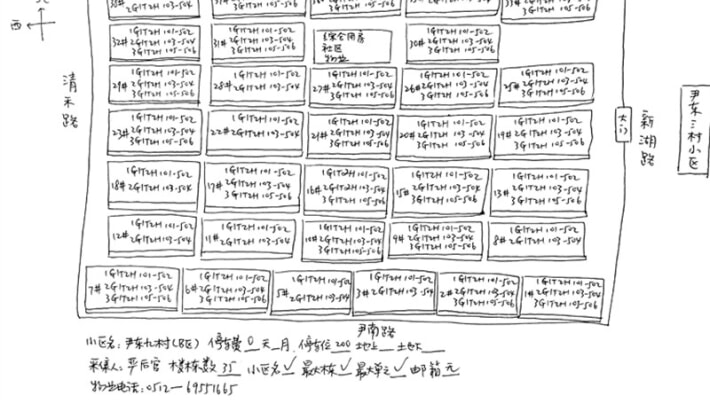 西
38#
2G1T2H 103-504
3G1T2H 105-506
33#
32#
1G1T2H 101-502
2G1T2H 103-504
3G1T2H 105-506
31#
1G1T2H 101-502
2G1T2H 103-504
3G1T2H 105-506
综合用房
社区
物业
30#
1G1T2H 101-502
2G1T2H 103-504
3G1T2H 105-506
29#
1G1T2H 101-502
2G1T2H 103-504
3G1T2H 105-506
28#
1G1T2H 101-502
2G1T2H 103-504
27#
1G1T2H 101-502
2G1T2H 103-504
3G1T2H 105-506
26#
1G1T2H 101-502
2G1T2H 103-504
3G1T2H 105-506
25#
1G1T2H 101-502
2G1T2H 103-504
3G1T2H 105-506
清禾路
23#
1G1T2H 101-502
2G1T2H 103-504
3G1T2H 105-506
22#
1G1T2H 101-502
2G1T2H 103-504
21#
1G1T2H 101-502
2G1T2H 103-504
3G1T2H 105-506
20#
1G1T2H 101-502
2G1T2H 103-504
3G1T2H 105-506
19#
1G1T2H 101-502
2G1T2H 103-504
3G1T2H 105-506
大门
新湖路
尹东三村小区
18#
1G1T2H 101-502
2G1T2H 103-504
17#
1G1T2H 101-502
2G1T2H 103-504
3G1T2H 105-506
16#
1G1T2H 101-502
2G1T2H 103-504
3G1T2H 105-506
15#
1G1T2H 101-502
2G1T2H 103-504
3G1T2H 105-506
13#
1G1T2H 101-502
2G1T2H 103-504
3G1T2H 105-506
12#
1G1T2H 101-502
2G1T2H 103-504
11#
1G1T2H 101-502
2G1T2H 103-504
10#
1G1T2H 101-502
2G1T2H 103-504
3G1T2H 105-506
9#
1G1T2H 101-502
2G1T2H 103-504
3G1T2H 105-506
8#
1G1T2H 101-502
2G1T2H 103-504
7#
1G1T2H 101-502
2G1T2H 103-504
3G1T2H 105-506
6#
1G1T2H 101-502
2G1T2H 103-504
3G1T2H 105-506
5#
1G1T2H 101-502
2G1T2H 103-504
3#
1G1T2H 101-502
2G1T2H 103-504
2#
1G1T2H 101-502
2G1T2H 103-504
3G1T2H 105-506
1#
1G1T2H 101-502
2G1T2H 103-504
3G1T2H 105-506
尹南路
小区名:尹东九村(B区) 停车费 0 天 月 停车位 200 地上 地下
采集人: 后官 楼栋数 35 小区名√ 最大栋√ 最大单元√ 邮箱 无
物业电话:0512—69551665